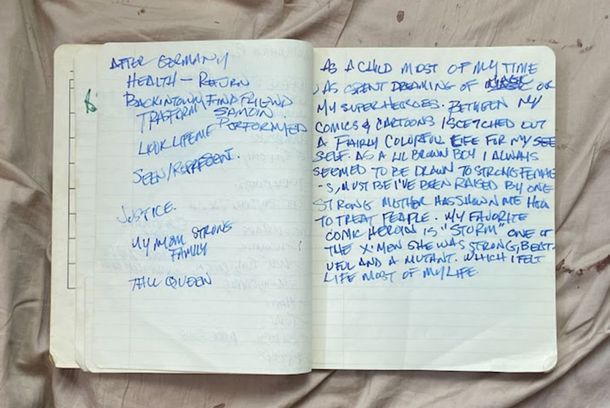 AFTER GERMANY
HEALTH - RETURN
BACK IN TOWN / FIND FRIEND
TRASFORM SAMOIN
LOOK LIKE ME PERFORMED
SEEN/REPRESENT.
JUSTICE.
MY MOM STRONG
FAMILY
THE QUEEN
AS A CHILD MOST OF MY TIME
WAS SPENT DREAMING OF OR
MY SUPERHEROES. BETWEEN MY
COMICS & CARTOONS I SCETCHED OUT
A FAIRLY COLORFUL LIFE FOR MY SEE
SELF. AS A LIL BROWN BOY I ALWAYS
SEEMED TO BE DRAWN TO STRONG FEMALE
-S, MUST BE I'VE BEEN RAISED BY ONE
STRONG MOTHER HAS SHOWN ME HOW
TO TREAT PEAPLE. MY FAVORITE
COMIC HEROIN IS "STORM" ONE OF
THE X-MEN SHE WAS STRONG, BEAT-
UFUL AND A MUTANT. WHICH I FELT
LIFE MOST OF MY LIFE.